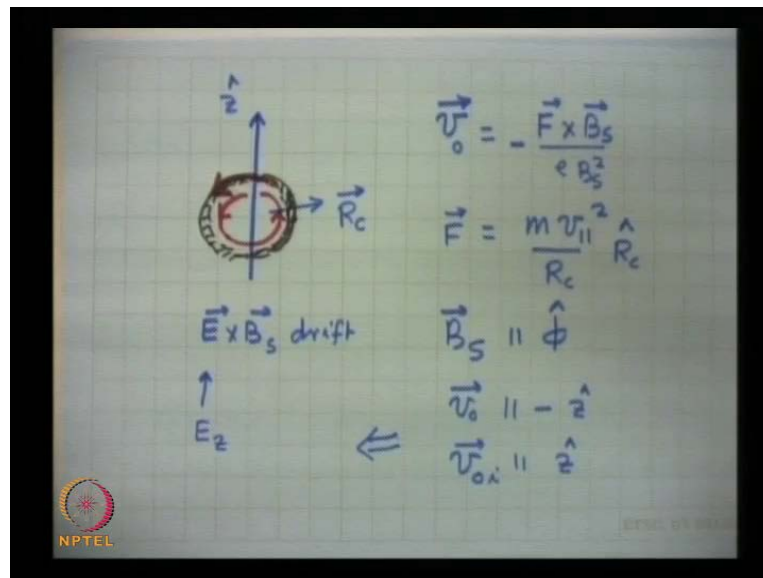 ẑ
R⃗_c
E⃗ × B⃗_s drift
↑
E_z
v⃗_0 = - F⃗ × B⃗_s / e B_s²
F⃗ = m v_∥² / R_c R̂_c
B⃗_s ∥ φ̂
v⃗_0 ∥ - ẑ
⇐ v⃗_0i ∥ ẑ
NPTEL